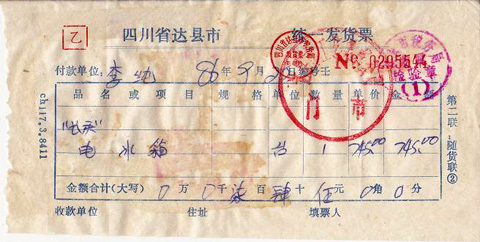 乙
四川省达县市 统一发货票
付款单位: 李 86年9月
№
品名或项目 规格 单位 数量 单价 金
电冰箱 台 1 745.00 745.00
金额合计(大写) 0万0千柒百肆十伍元0角0分
收款单位 住址 填票人
第二联:随货联②
ch117.3.8411
门市
检验章
(1)